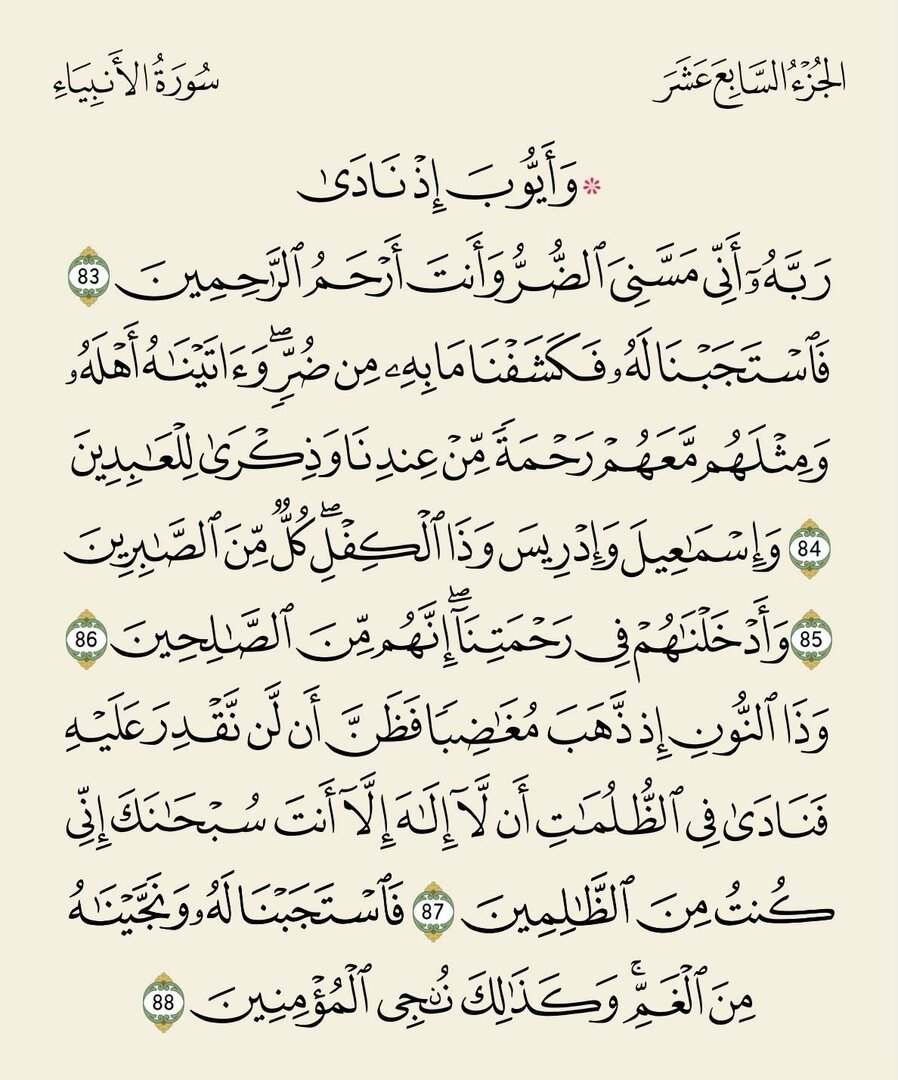 الجُزْءُ السَّابِعَ عَشَرَ
سُورَةُ الأَنبِيَاءِ
۞ وَأَيُّوبَ إِذْ نَادَىٰ
رَبَّهُۥٓ أَنِّى مَسَّنِىَ ٱلضُّرُّ وَأَنتَ أَرْحَمُ ٱلرَّٰحِمِينَ 83
فَٱسْتَجَبْنَا لَهُۥ فَكَشَفْنَا مَا بِهِۦ مِن ضُرٍّۖ وَءَاتَيْنَٰهُ أَهْلَهُۥ
وَمِثْلَهُم مَّعَهُمْ رَحْمَةً مِّنْ عِندِنَا وَذِكْرَىٰ لِلْعَٰبِدِينَ
84 وَإِسْمَٰعِيلَ وَإِدْرِيسَ وَذَا ٱلْكِفْلِۖ كُلٌّ مِّنَ ٱلصَّٰبِرِينَ
85 وَأَدْخَلْنَٰهُمْ فِى رَحْمَتِنَآۖ إِنَّهُم مِّنَ ٱلصَّٰلِحِينَ 86
وَذَا ٱلنُّونِ إِذ ذَّهَبَ مُغَٰضِبًا فَظَنَّ أَن لَّن نَّقْدِرَ عَلَيْهِ
فَنَادَىٰ فِى ٱلظُّلُمَٰتِ أَن لَّآ إِلَٰهَ إِلَّآ أَنتَ سُبْحَٰنَكَ إِنِّى
كُنتُ مِنَ ٱلظَّٰلِمِينَ 87 فَٱسْتَجَبْنَا لَهُۥ وَنَجَّيْنَٰهُ
مِنَ ٱلْغَمِّۚ وَكَذَٰلِكَ نُۨجِى ٱلْمُؤْمِنِينَ 88